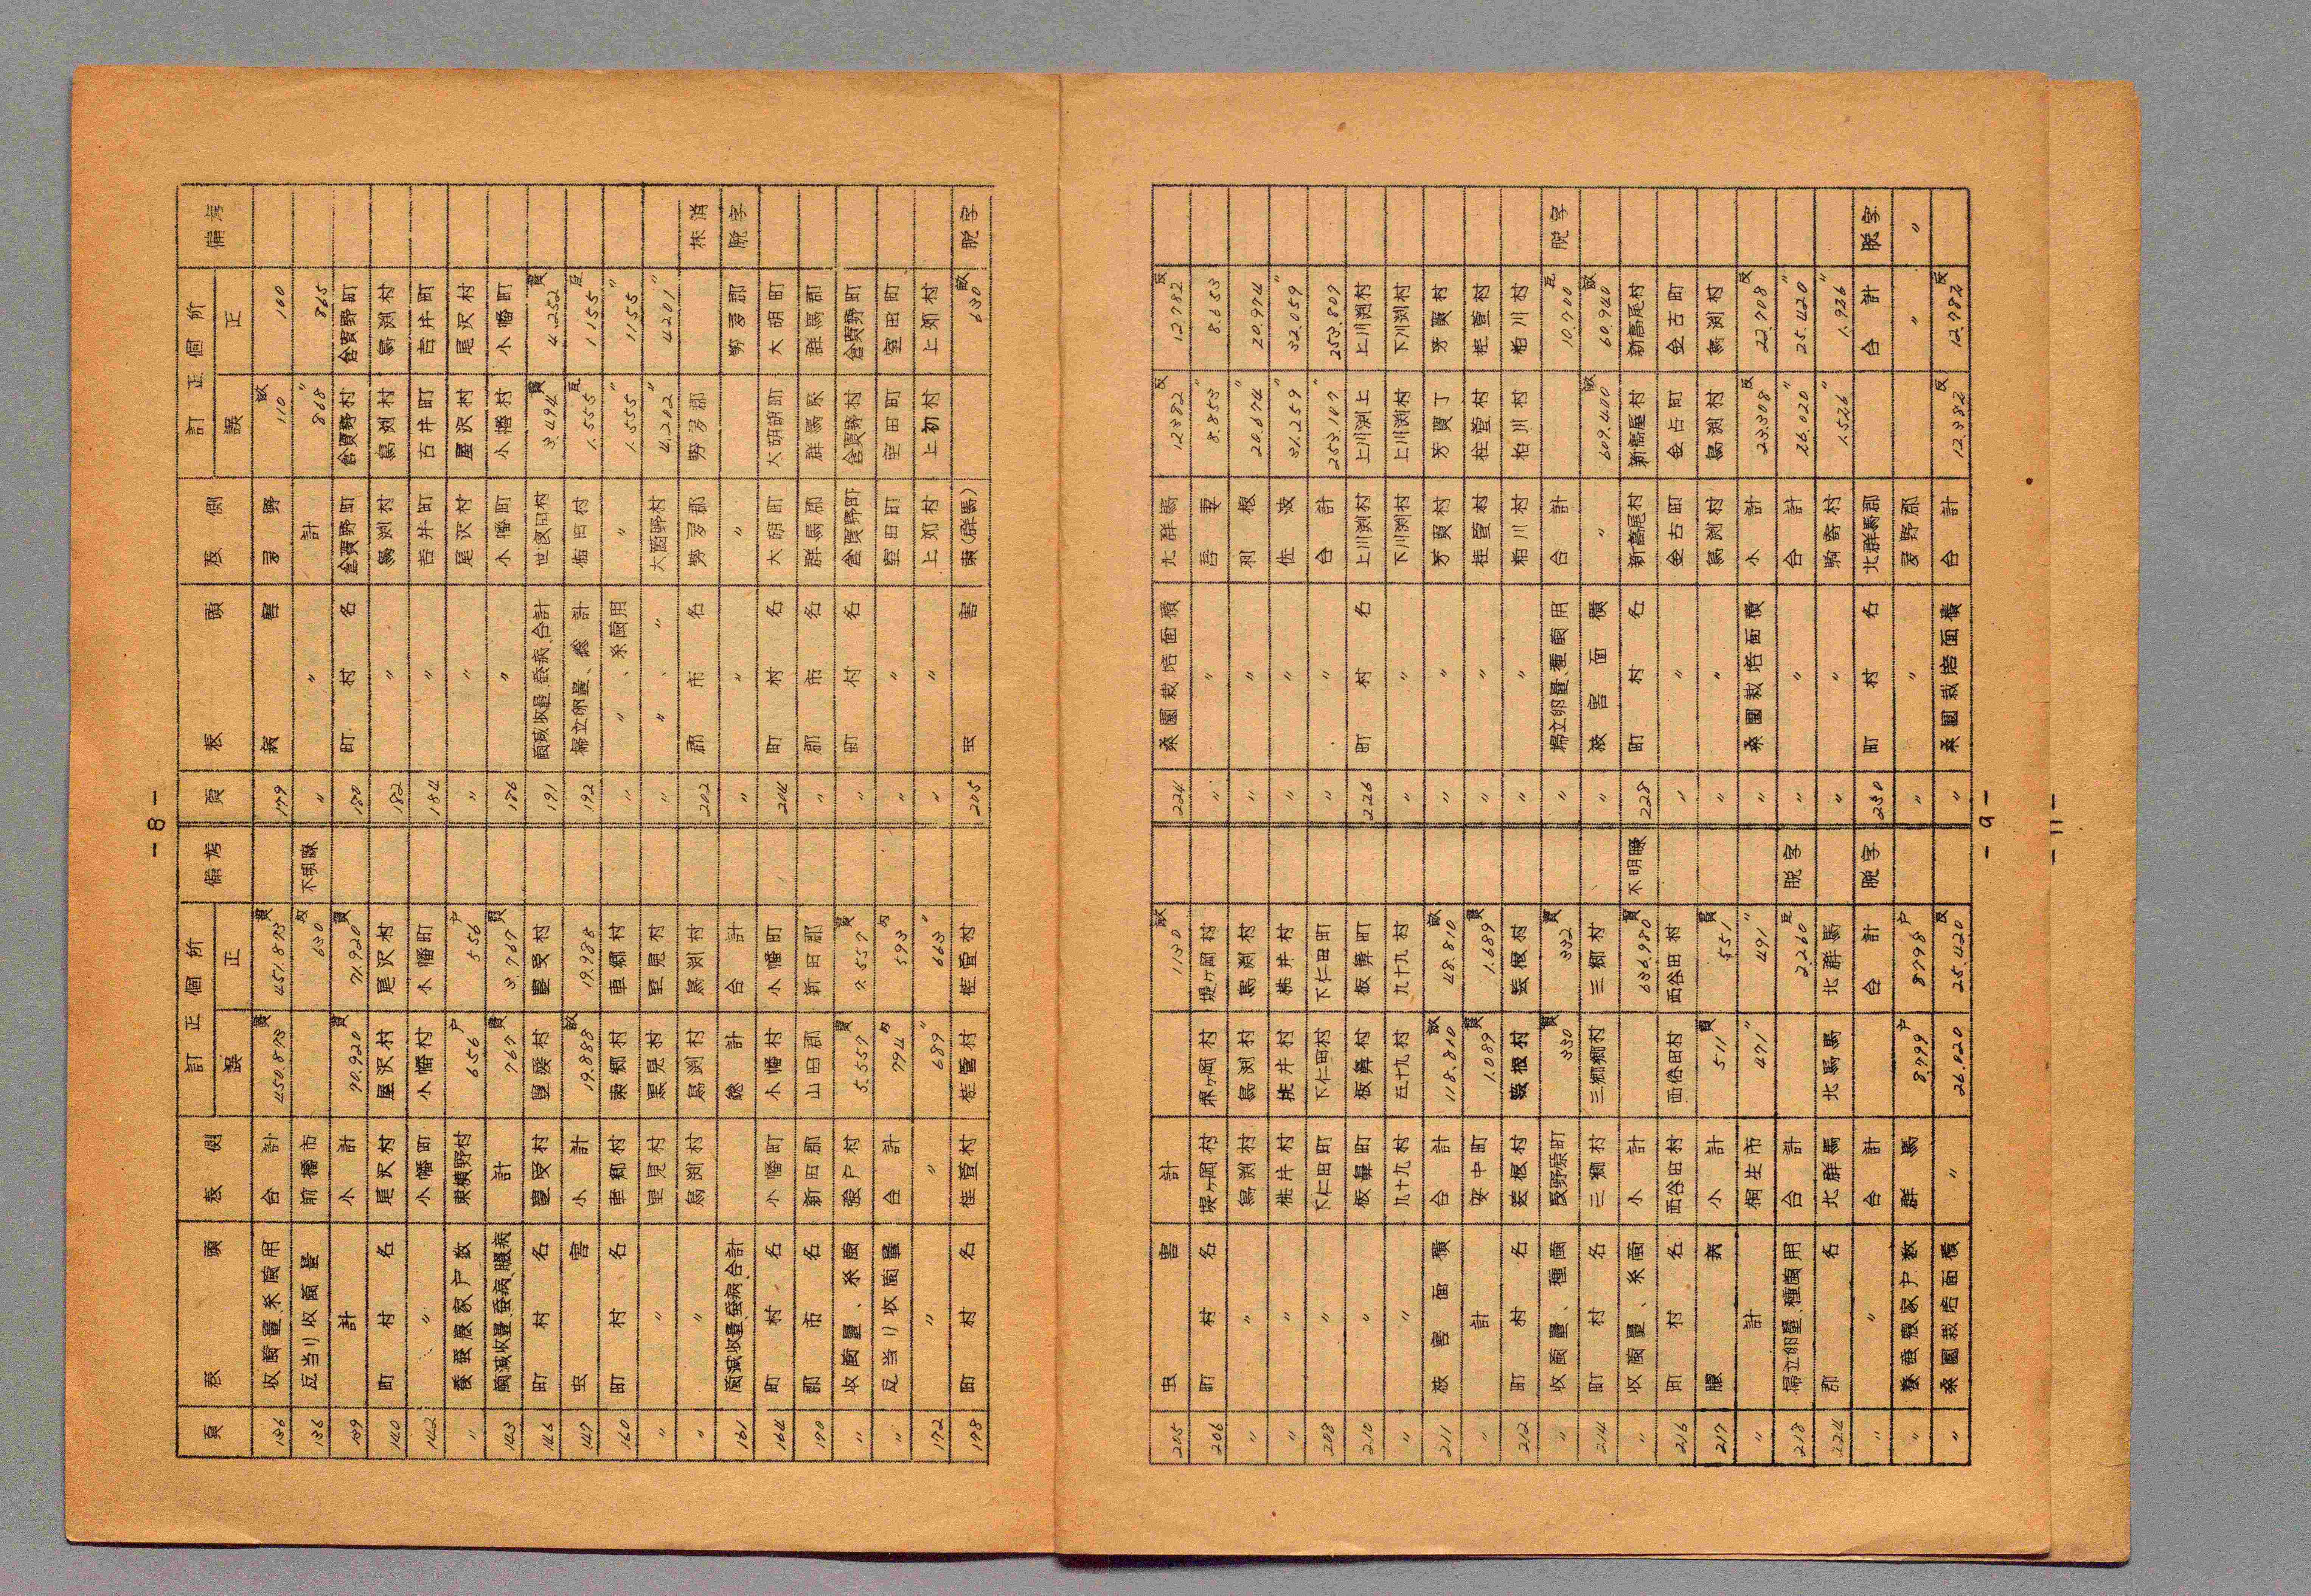 - 8 -
頁 表頭 表側 訂正個所 備考
誤 正
136 收繭量糸繭用 合計 450.873貫 451.873貫
136 反当り收繭量 前橋市 630匁 不明瞭
139 計 小計 70.920貫 71.920貫
140 町村名 尾沢村 屋沢村 尾沢村
142 〃 小幡町 小幡村 小幡町
〃 養蚕農家戸数 東横野村 656戸 556戸
143 繭減收量蚕病膿病 計 767貫 3.767貫
146 町村名 豊受村
147 虫害 小計 19.888畝 19.988
160 町村名 車郷村 東郷村 車郷村
〃 〃 里見村 黒見村 里見村
〃 〃 烏渕村 鳥渕村 烏渕村
161 繭減收量蚕病合計 総計 合計
164 町村名 小幡町 小幡村 小幡町
170 郡市名 新田郡 山田郡 新田郡
〃 收繭量、糸繭 強戸村 5.557貫 7.557貫
〃 反当り收繭量 合計 794匁 593匁
172 〃 〃 689〃 663〃
178 町村名 桂萱村 桂管村 桂萱村
頁 表頭 表側 訂正個所 備考
誤 正
179 病害 多野 110畝 100
〃 〃 計 868〃 865
180 町村名 倉賀野町 倉賀野村 倉賀野町
182 〃 烏渕村 鳥渕村 烏渕村
184 〃 吉井町 古井町 吉井町
〃 〃 尾沢村 屋沢村 尾沢村
186 〃 小幡町 小幡村 小幡町
191 繭減收量蚕病合計 世良田村 3.494貫 4.252貫
192 掃立卵量、総計 1.555瓦 1155瓦
〃 〃、糸繭用 〃 1.555〃 1155〃
〃 〃、〃 大箇野村 4.202〃 4.201〃
202 郡市名 勢多郡 勢多郡 抹消
〃 〃 〃 勢多郡 脱字
204 町村名 大胡町 大胡胡町 大胡町
〃 郡市名 群馬郡 群馬県 群馬郡
〃 町村名 倉賀野町 倉賀野村 倉賀野町
〃 〃 室田町 室田町
〃 〃 上郊村 上初村 上郊村
205 虫害 東(群馬) 630畝 脱字
205 虫害 計 1130畝
206 町村名 堤ヶ岡村 堀ヶ岡村 堤ヶ岡村
〃 〃 烏渕村 鳥渕村 烏渕村
〃 〃 桃井村 挑井村 桃井村
208 〃 下仁田町 下仁田村 下仁田町
210 〃 板鼻町 板鼻村 板鼻町
〃 〃 九十九村 五十九村 九十九村
211 被害面積 合計 118.810畝 48.810畝
〃 計 安中町 1.089貫 1.689貫
212 町村名
〃 收繭量、種繭 長野原町 330貫 332貫
214 町村名 三郷村 三郷郷村 三郷村
〃 收繭量、糸繭 小計 636.980貫 不明瞭
216 町村名 西谷田村 西俗田村 西谷田村
217 膿病 小計 511貫 551貫
〃 計 桐生市 471〃 491〃
218 掃立卵量、種繭用 合計 2.260瓦 脱字
224 郡名 北群馬 北馬馬 北群馬
〃 〃 合計 合計 脱字
〃 養蚕農家戸数 群馬 8.799戸 8798戸
〃 桑園栽培面積 〃 26.020 25.420反
224 桑園栽培面積 北群馬 12382反 12782反
〃 〃 吾妻 8.853〃 8.653
〃 〃 利根 20.674〃 20.974〃
〃 〃 佐波 31.259〃 32.059〃
〃 〃 合計 253.107〃 253.807
226 町村名 上川渕村 上川渕上 上川渕村
〃 〃 下川渕村 上川渕村 下川渕村
〃 〃 芳賀村 芳賀丁 芳賀村
〃 〃 桂萱村 桂萱村
〃 〃 粕川村 柏川村 粕川村
〃 掃立卵量、種繭用 合計 10.700瓦 脱字
〃 被害面積 〃 609.400畝 60.940畝
228 町村名 新高尾村 新高屋村 新高尾村
〃 〃 金古町 金占町 金古町
〃 〃 烏渕村 鳥渕村 烏渕村
〃 桑園栽培面積 小計 23.308反 22.708反
〃 〃 合計 26.020〃 25.420〃
〃 〃 駒寄村 1.526〃 1.926〃
230 町村名 北群馬郡 合計 脱字
〃 〃 多野郡 〃 〃
〃 桑園栽培面積 合計 12.382反 12.782反
- 9 -
- 11 -